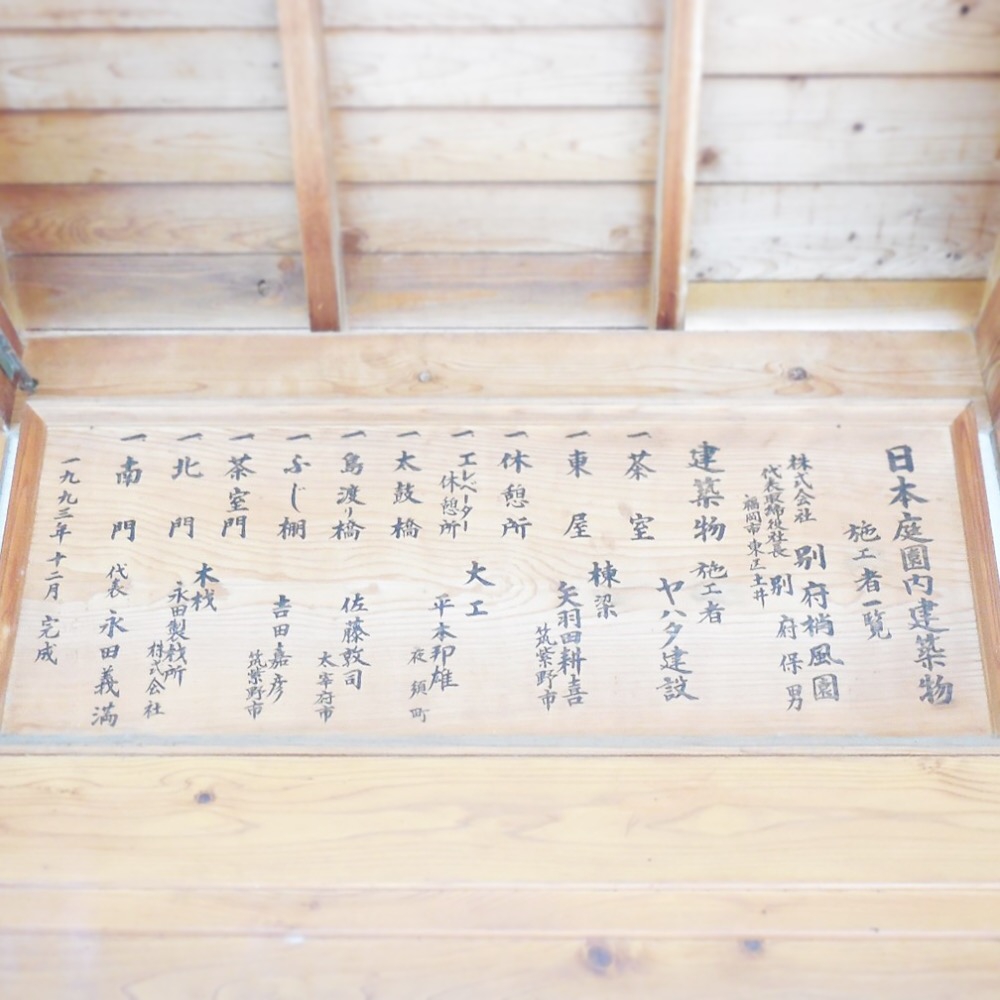 日本庭園内建築物
施工者一覧
株式会社 別府梢風園
代表取締役社長 別府保男
福岡市東区土井
建築物 施工者
ヤハタ建設
一 茶室
棟梁
一 東屋 矢羽田耕喜
筑紫野市
一 休憩所
大工
一 エレベーター休憩所 平本邦雄
夜須町
一 太鼓橋
一 鳥渡り橋 佐藤敦司
太宰府市
一 ふじ棚 吉田嘉彦
筑紫野市
一 茶室門
木材
一 北門 永田製材所
株式会社
一 南門 代表 永田義満
一九九三年十二月 完成